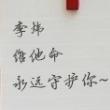 李炜
你他命
永远守护你~